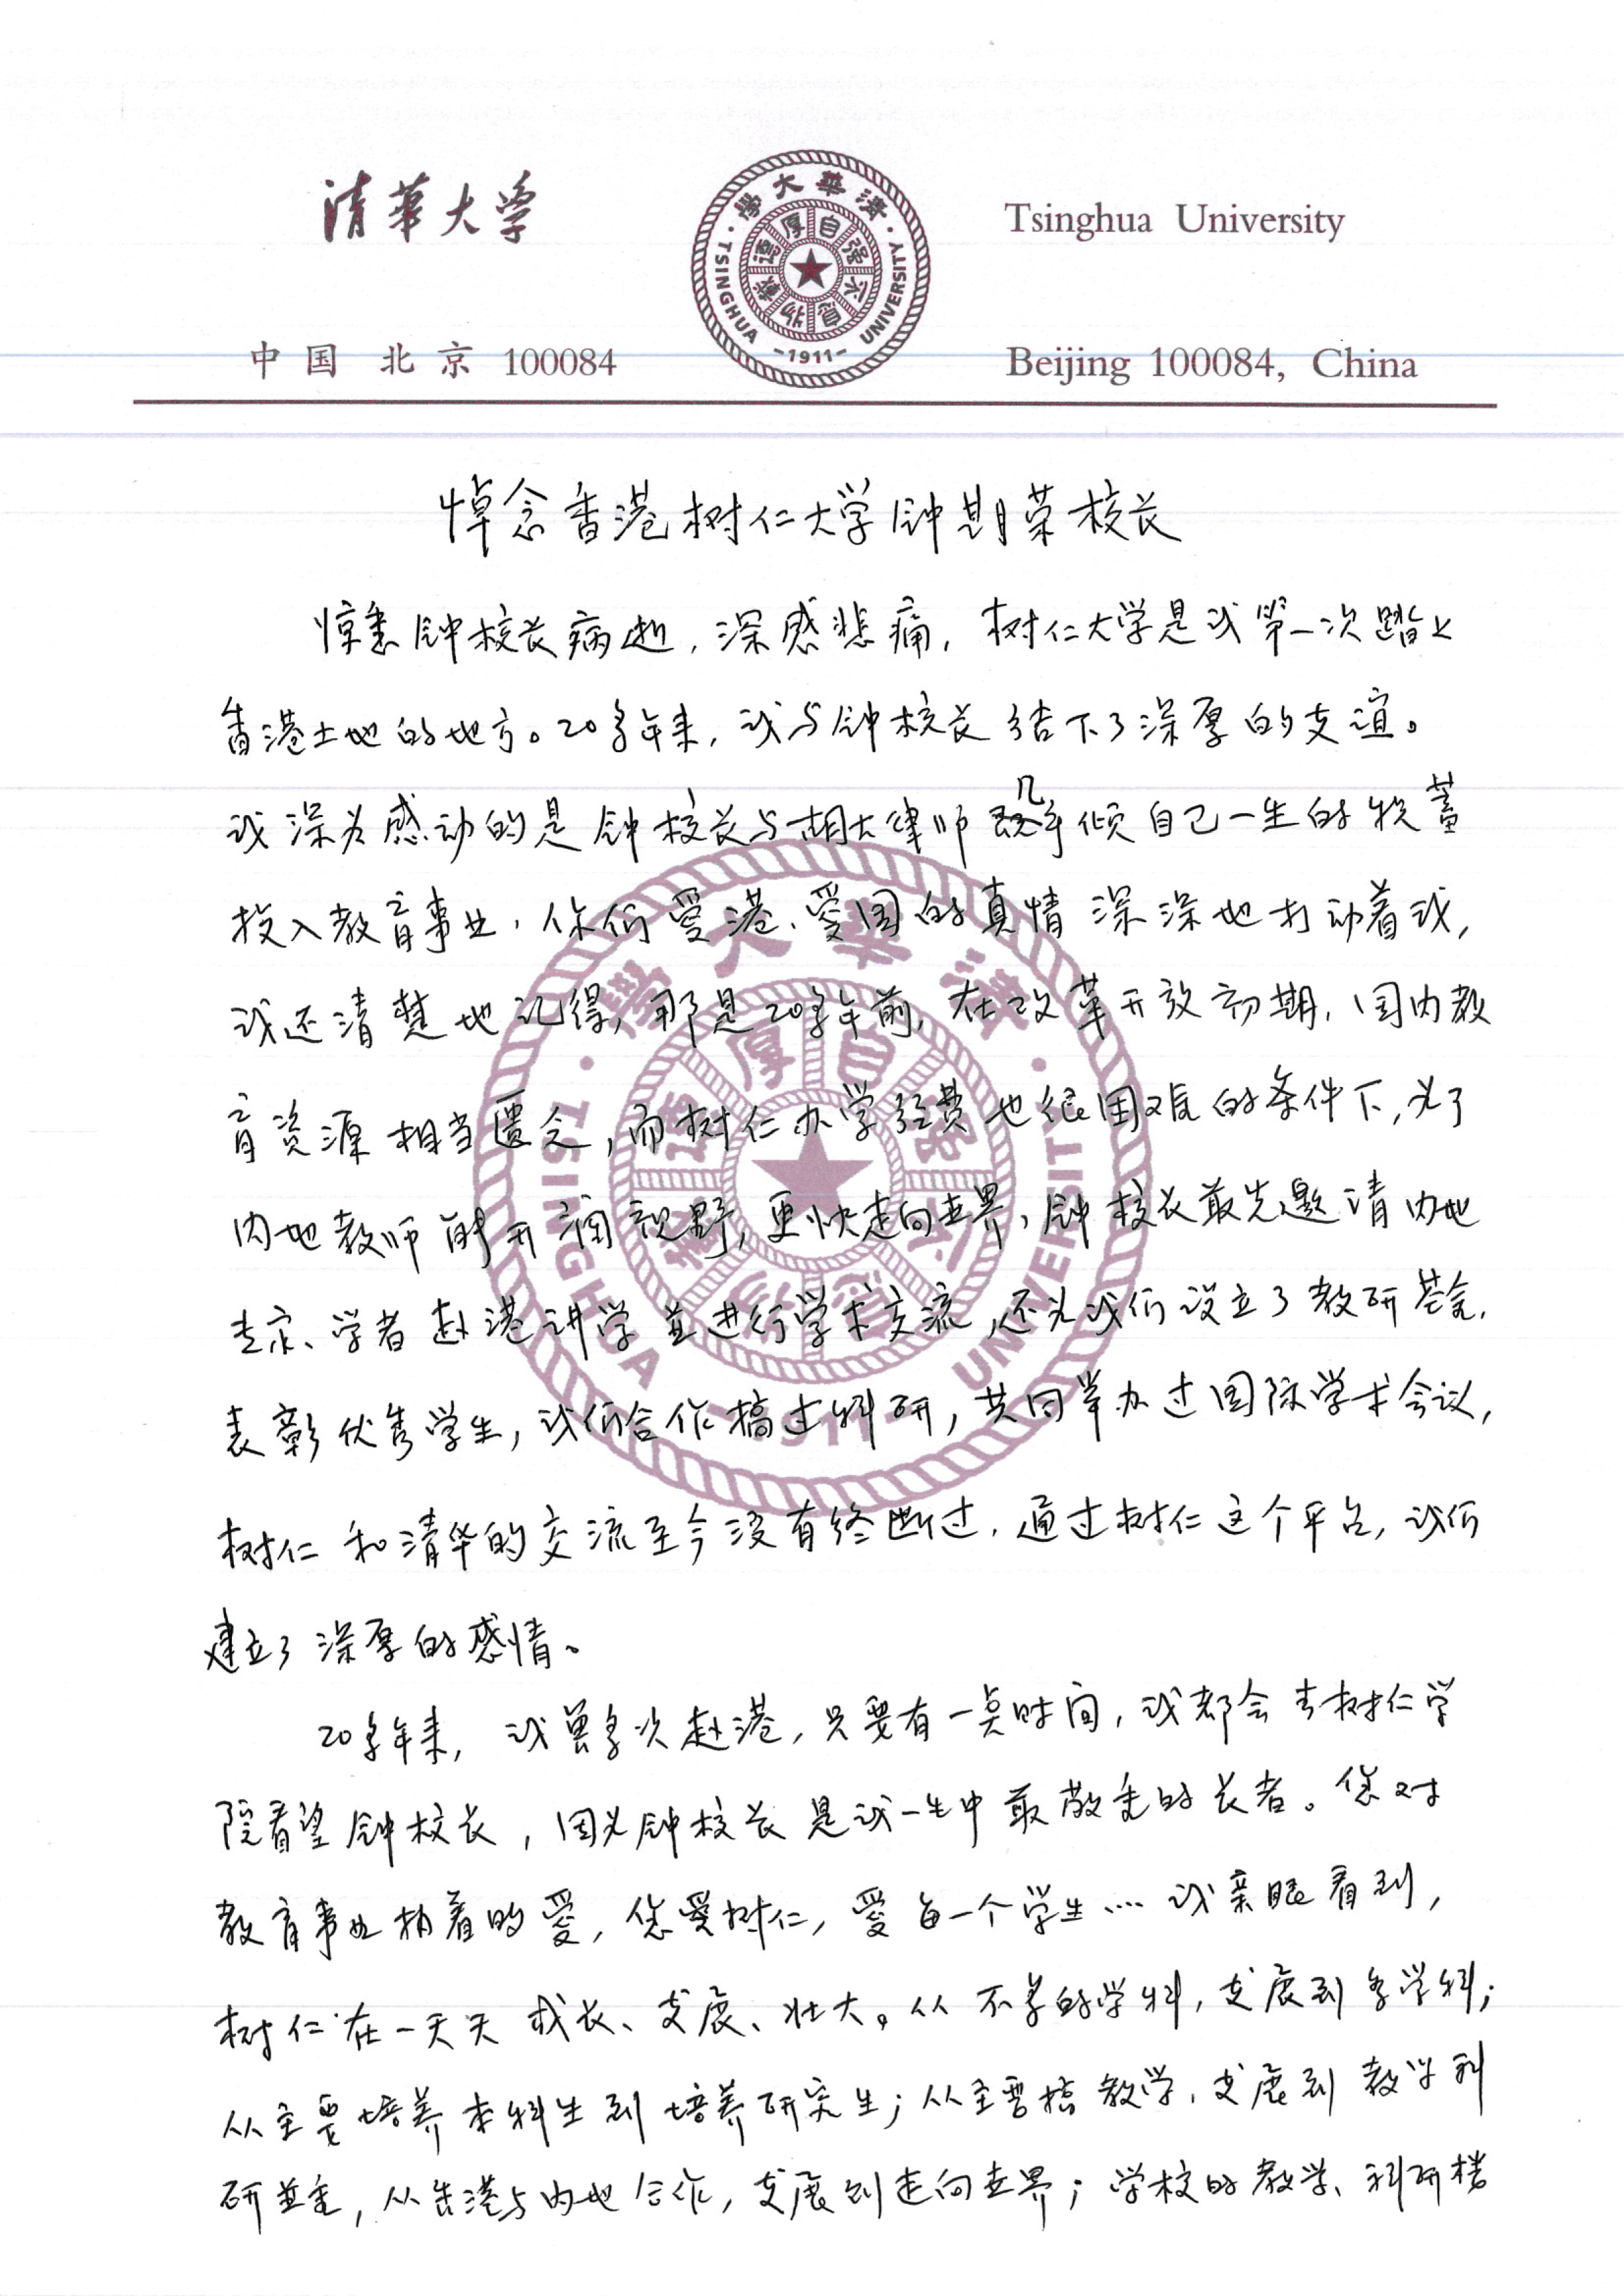 清華大学
清華大學
TSINGHUA UNIVERSITY
-1911-
自强不息
厚德載物
Tsinghua University
中国 北京 100084
Beijing 100084, China
悼念香港树仁大学钟期荣校长
惊悉钟校长病逝，深感悲痛，树仁大学是我第一次踏上
香港土地的地方。20多年来，我与钟校长结下了深厚的友谊。
我深为感动的是钟校长与胡大律师几乎倾自己一生的积蓄
投入教育事业，你们爱港、爱国的真情深深地打动着我，
我还清楚地记得，那是20多年前，在改革开放初期，国内教
育资源相当匮乏，而树仁办学经费也很困难的条件下，为了
内地教师能开阔视野，更快走向世界，钟校长最先邀请内地
专家、学者赴港讲学並进行学术交流，还为我们设立了教研基金，
表彰优秀学生，我们合作搞过科研，共同举办过国际学术会议，
树仁和清华的交流至今没有终断过，通过树仁这个平台，我们
建立了深厚的感情。
20多年来，我曾多次赴港，只要有一点时间，我都会去树仁学
院看望钟校长，因为钟校长是我一生中最敬重的长者。您对
教育事业执着的爱，您爱树仁，爱每一个学生……我亲眼看到，
树仁在一天天成长、发展、壮大。从不多的学科，发展到多学科；
从主要培养本科生到培养研究生；从主要搞教学，发展到教学科
研並重，从香港与内地合作，发展到走向世界；学校的教学、科研楼
清華大學
TSINGHUA UNIVERSITY
1911
自强不息
厚德載物